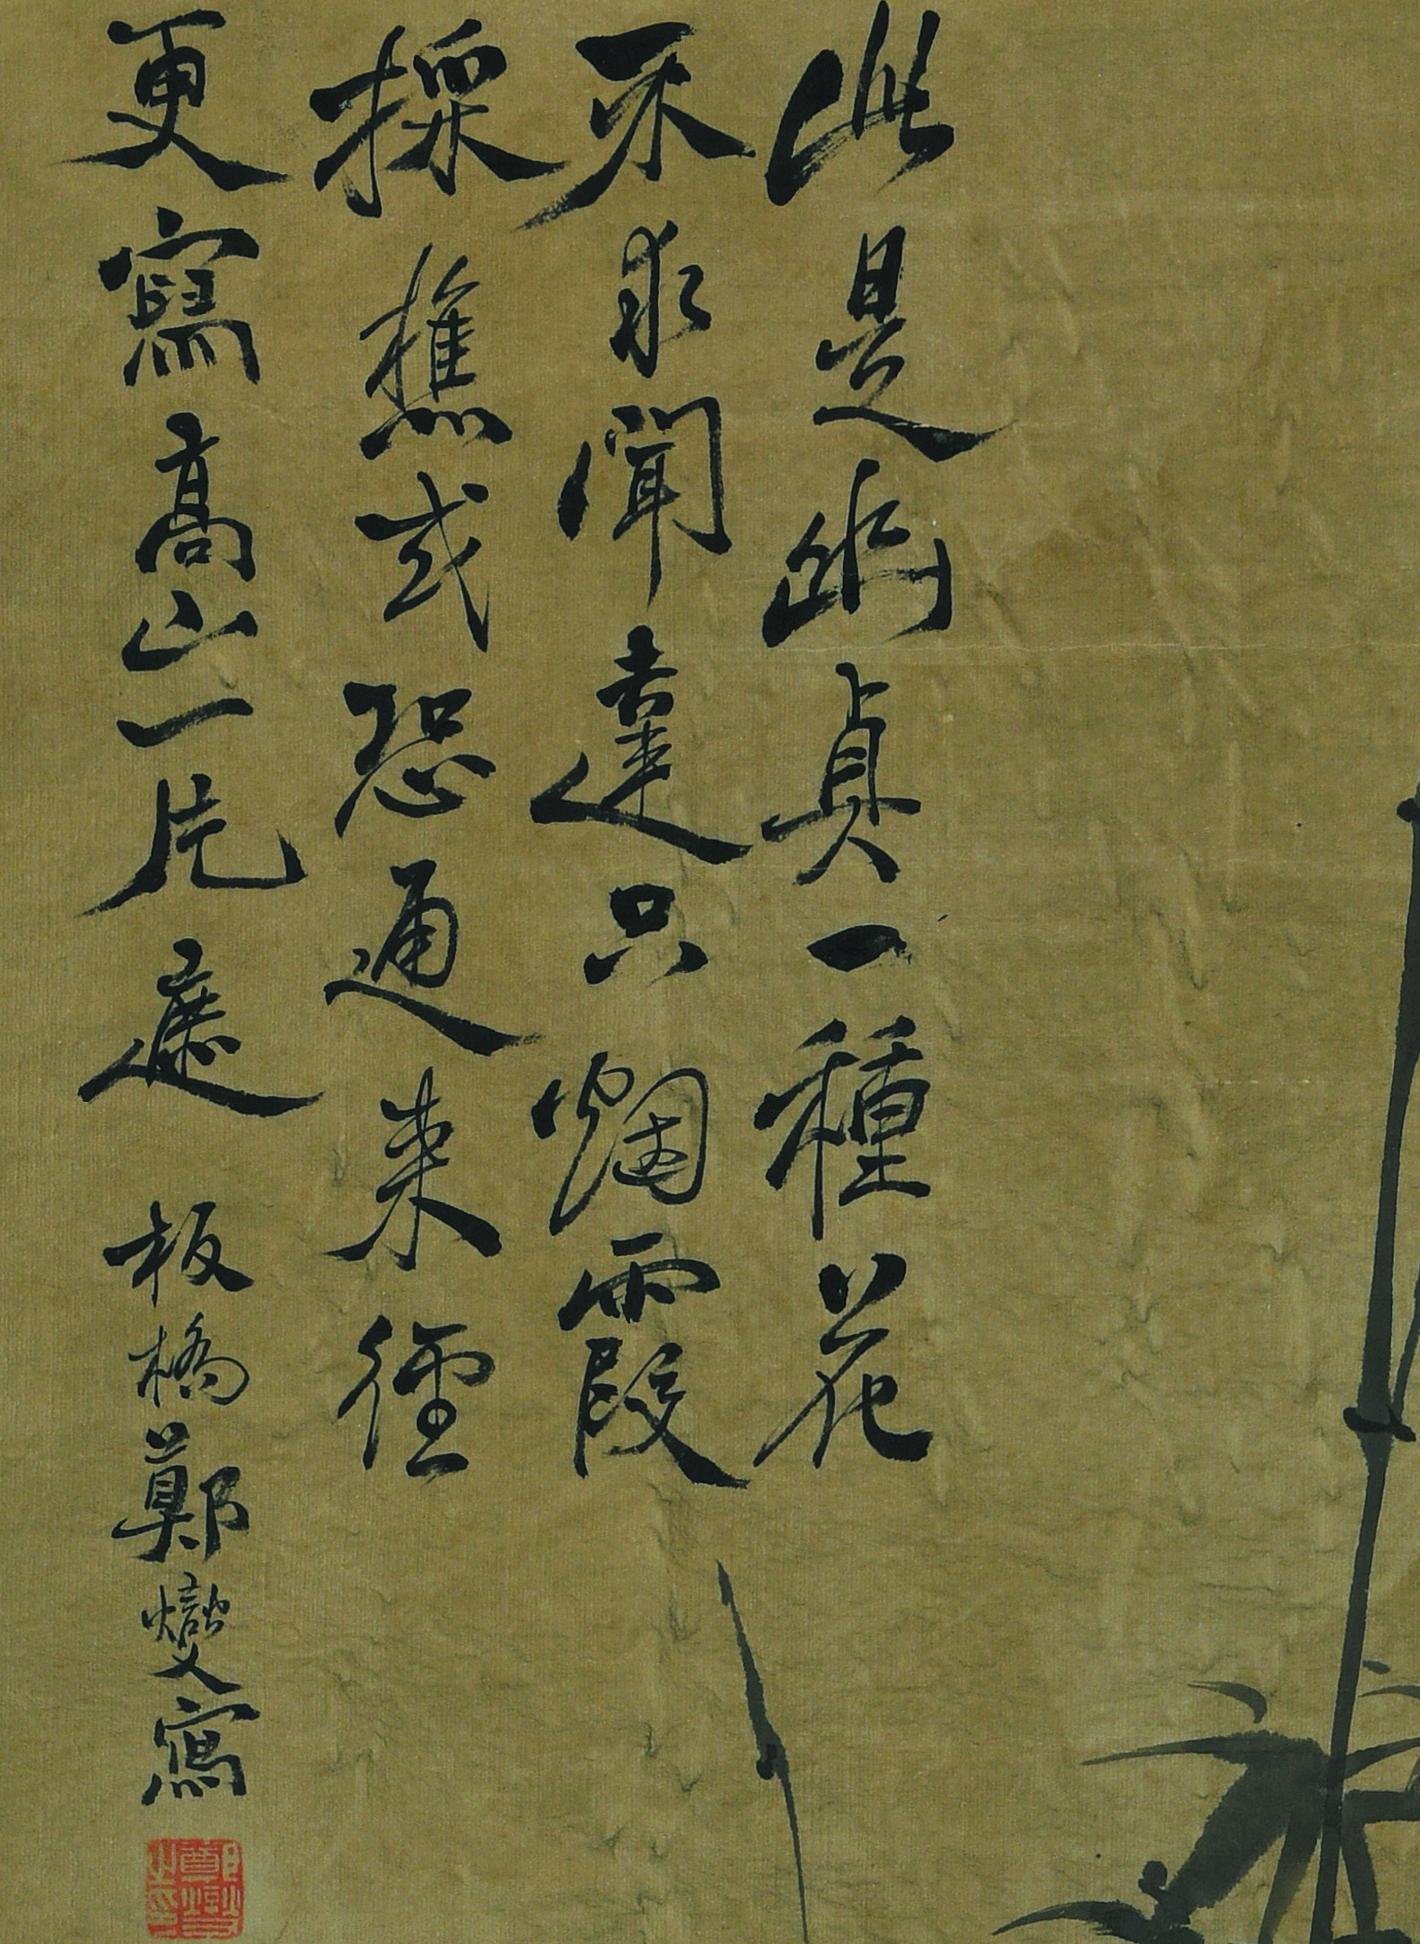 此是幽貞一種花
不求聞達只烟霞
採樵或恐通来徑
更寫高山一片遮 板橋鄭燮寫
鄭燮之印